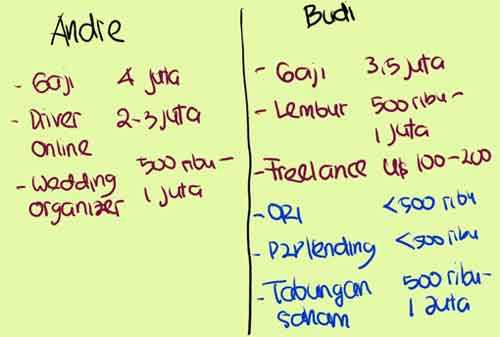 Andre
- Gaji 4 juta
- Driver 2-3 juta
online
- Wedding 500 ribu -
organizer 1 juta
Budi
- Gaji 3,5 juta
- Lembur 500 ribu -
1 juta
- Freelance U$ 100-200
- ORI <500 ribu
- P2P lending <500 ribu
- Tabungan 500 ribu -
saham 1 Juta